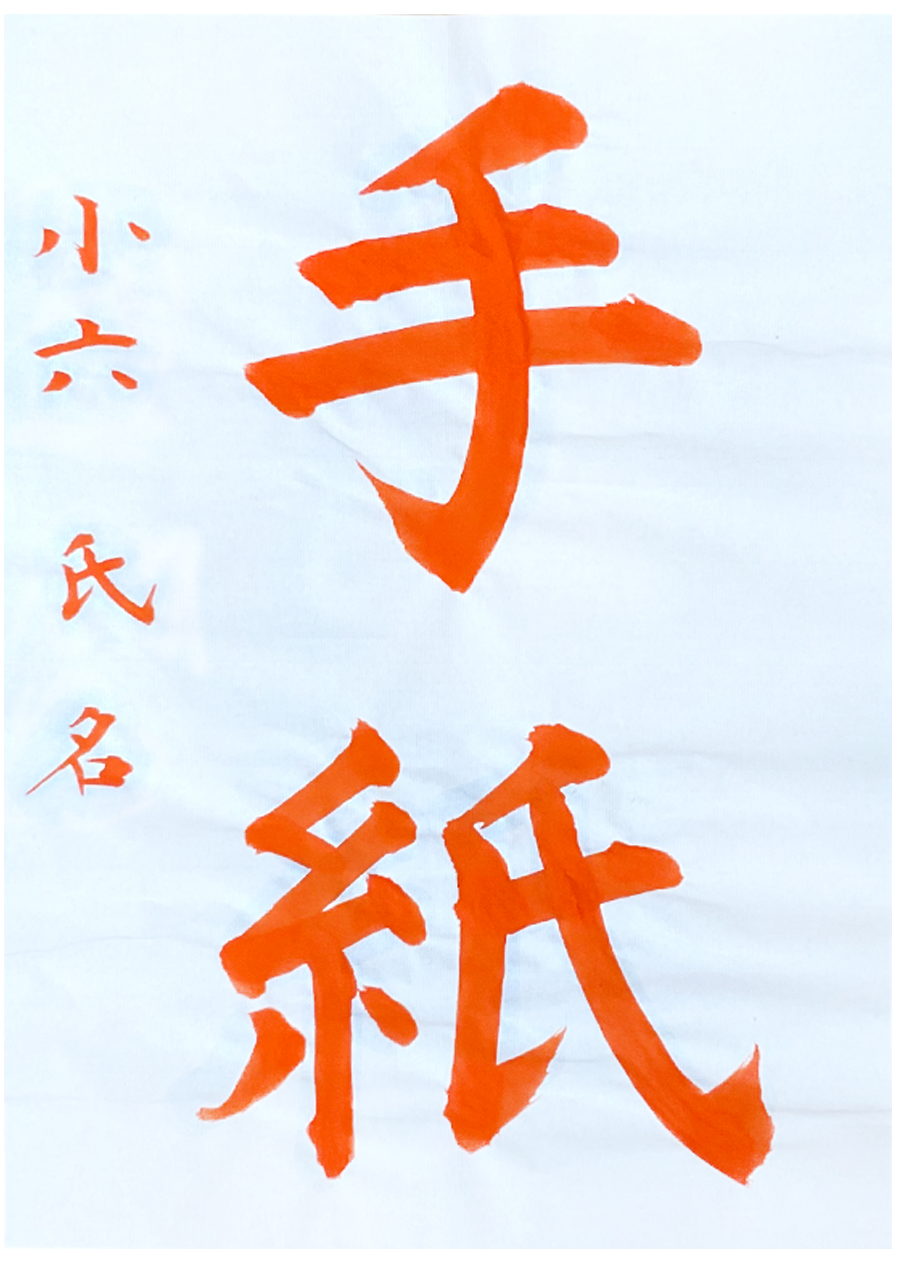 手紙
小六 氏名